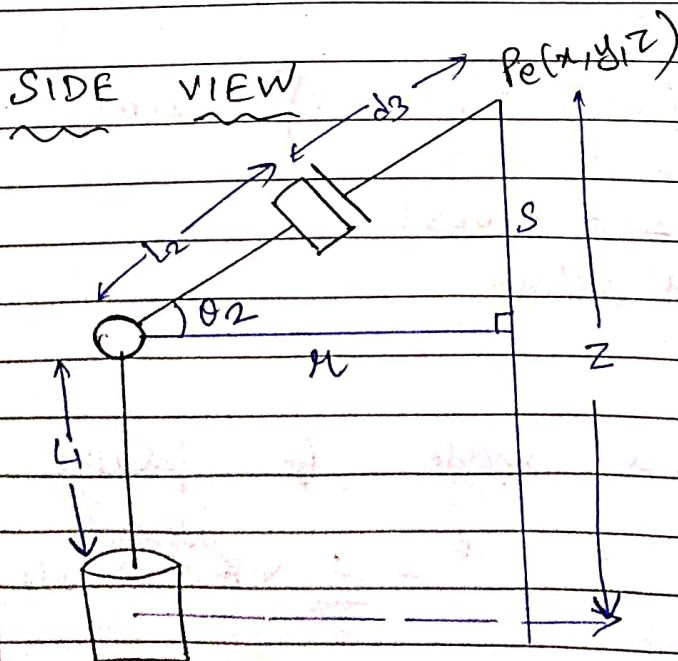 SIDE VIEW
Pe(x,y,z)
d3
L2
S
θ2
r
Z
L1